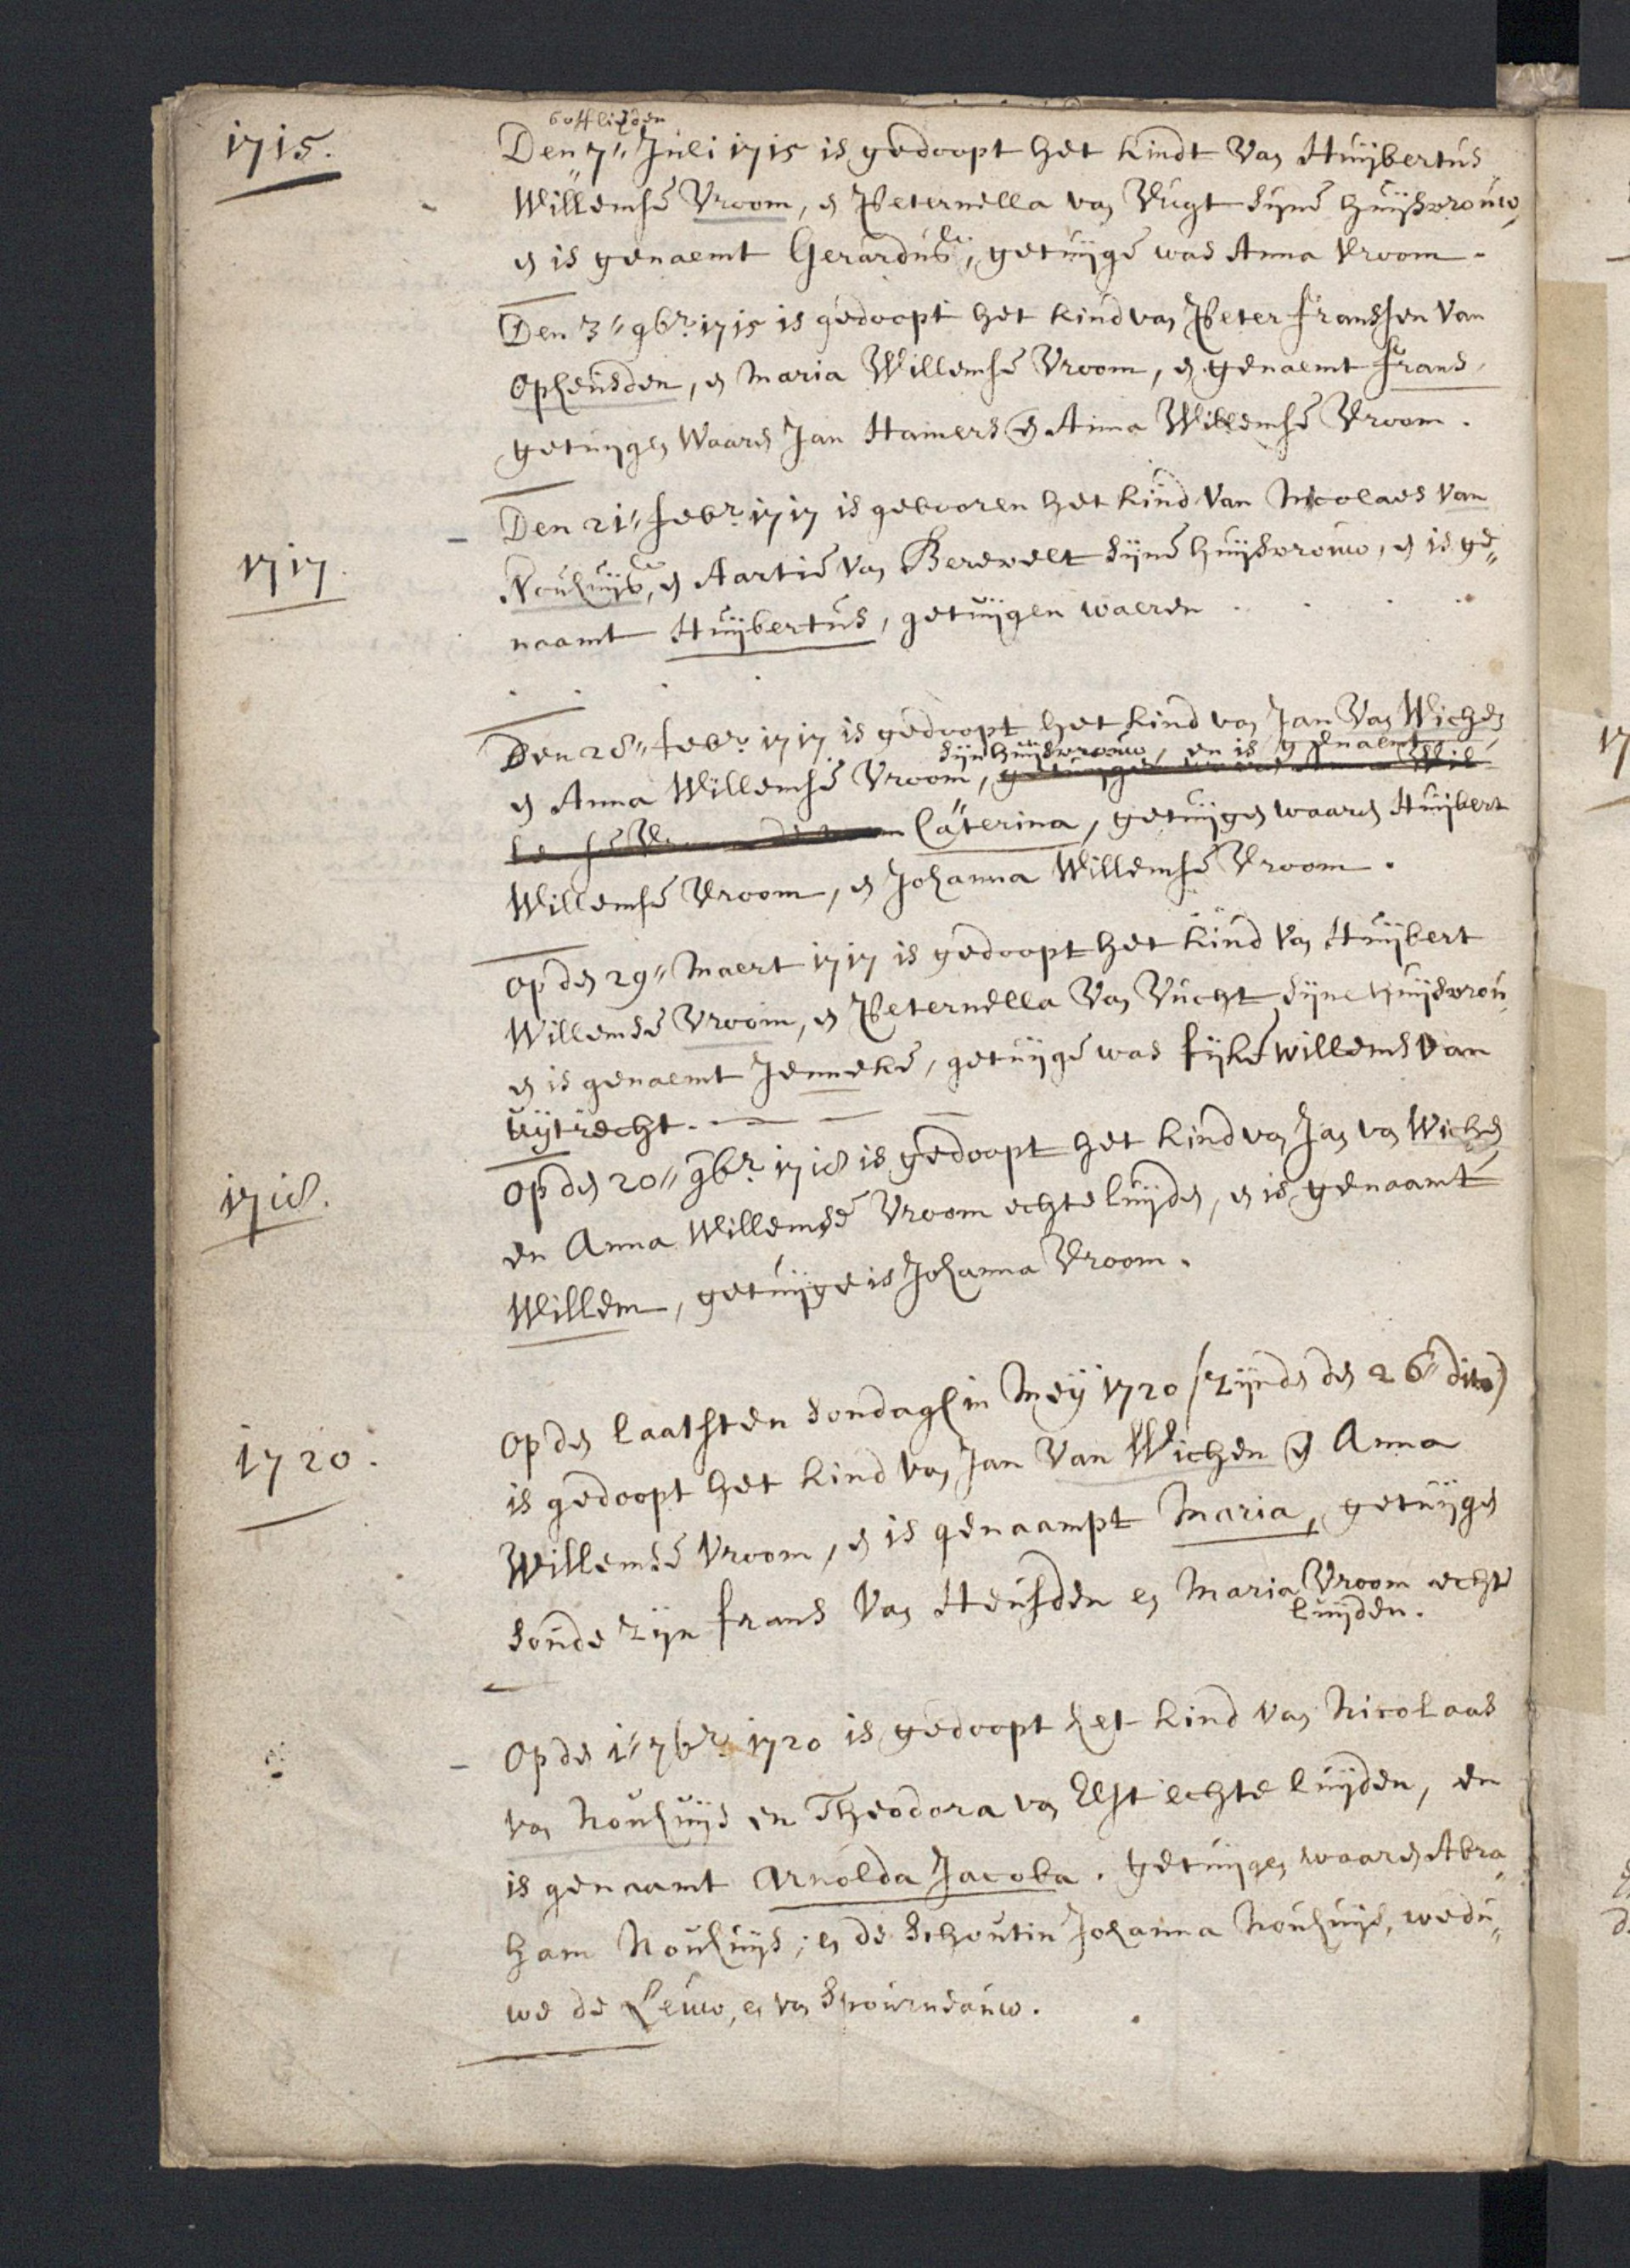 1715.
Den 7" Juli 1715 is gedoopt het kindt van Huijbertus
Willemse Vroom, en Peternella van Vugt sijne huijsvrouw,
en is genaemt Gerardus, getuijge was Anna Vroom.
Den 3" 9br. 1715 is gedoopt het kind van Peter franssen van
opheusden, en Maria Willemse Vroom, en genaemt frans,
getuijgen waaren Jan Hamers en Anna Willemse Vroom.
1717.
Den 21" febr. 1717 is gebooren het kind van Nicolaes van
Nouhuijs, en Aartie van Berevelt sijne huijsvrouw, en is ge„
naamt Huijbertus, getuijgen waeren . . . .
Den 28" febr. 1717 is gedoopt het kind van Jan van Wichen
sijn huijsvrouw, en is genaemt
en Anna Willemse Vroom, getuijgen Anna Wil
Caterina, getuijgen waaren Huijbert
Willemse Vroom, en Johanna Willemse Vroom.
op den 29" Maert 1717 is gedoopt het kind van Huijbert
Willemse Vroom, en Peternella van Vucht sijne huijsvrou,
en is genaemt Jenneke, getuijge was fijke willems van
uijtrecht.
1718.
op den 20" 9br. 1718 is gedoopt het kind van Jan van Wichen
en Anna Willemse Vroom echteluijden, en is genaamt
Willem, getuijge is Johanna Vroom.
1720.
op den laatsten sondagh in Meij 1720 (zijnde den 26" dito)
is gedoopt het kind van Jan van Wichen en Anna
Willemse Vroom, en is genaampt Maria, getuijgen
sonde zijn frans van Heusden en Maria Vroom echte
luijden.
Op den 1" 7br. 1720 is gedoopt het kind van Nicolaas
van Nouhuijs en Theodora van Elst echteluijden, en
is genaamt Arnolda Jacoba. getuijgen waaren Abra„
ham Nouhuijs; en de Schoutin Johanna Nouhuijs, wedu„
we de Leuw, en van